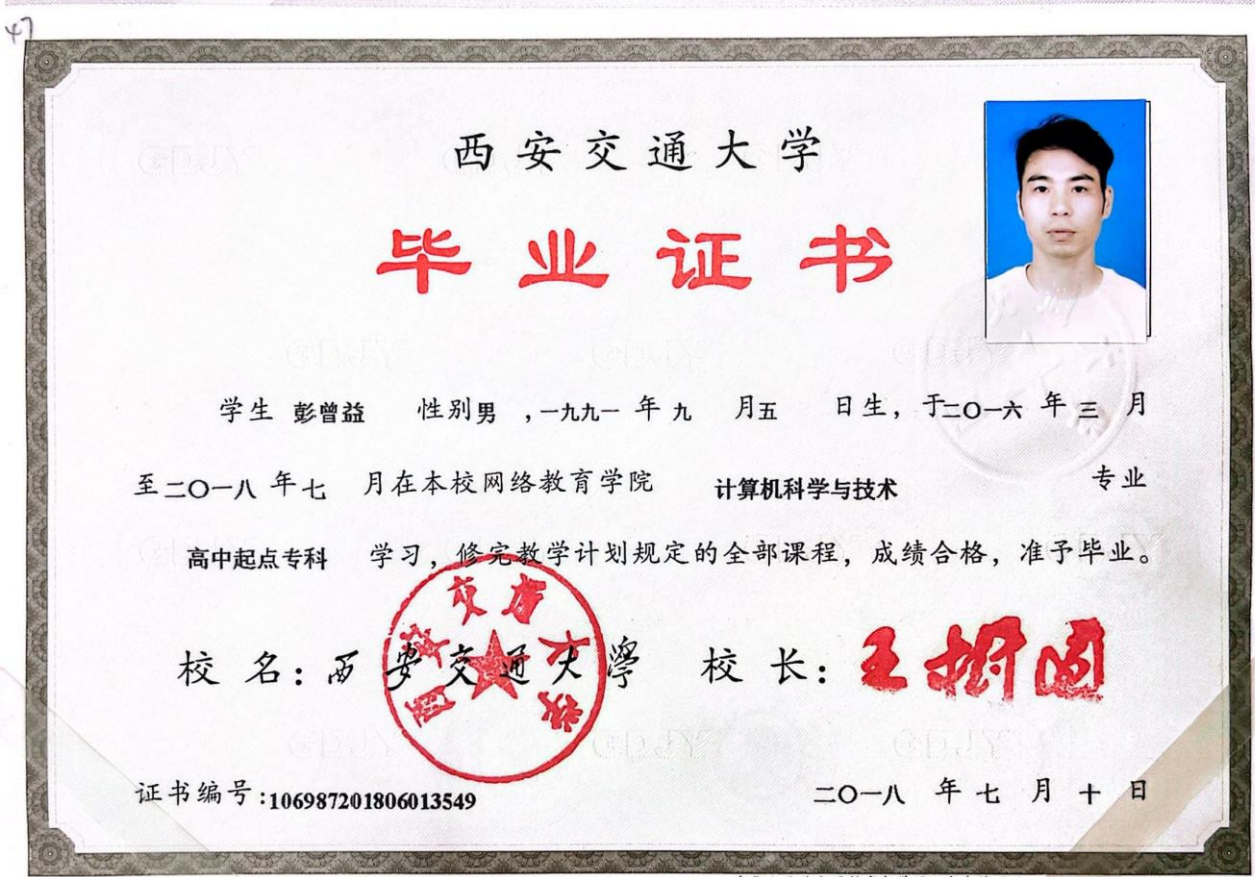 47
西安交通大学
毕业证书
学生 彭曾益 性别男 ,一九九一 年 九 月五 日生，于二〇一六 年 三 月
至二〇一八 年 七 月在本校网络教育学院 计算机科学与技术 专业
高中起点专科 学习，修完教学计划规定的全部课程，成绩合格，准予毕业。
校 名：西安交通大學 校 长：王树国
证书编号:106987201806013549 二〇一八 年 七 月 十 日